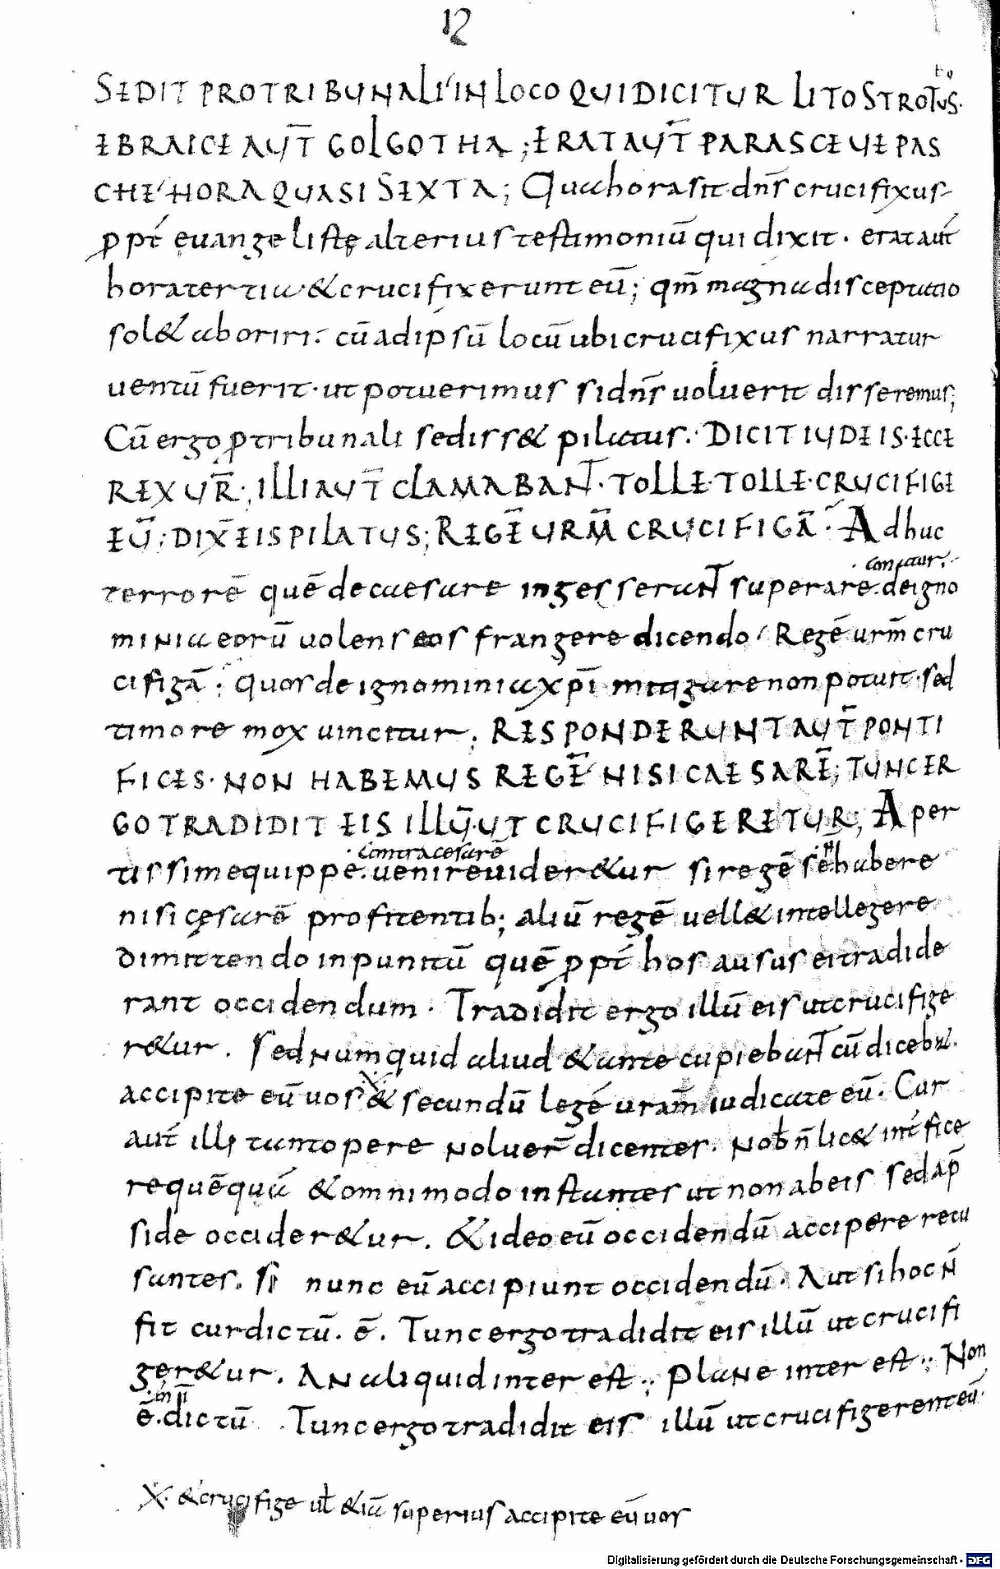 12
SEDIT PRO TRIBUNALI IN LOCO QUI DICITUR LITOSTROTUS.
EBRAICE AUT̄ GOLGOTHA; ERAT AUT̄ PARASCEUE PAS
CHE HORA QUASI SEXTA; Qua hora sit dn̄s crucifixus
ꝓpt́ euangelistę alterius testimoniū qui dixit. erat aut́
hora tertia & crucifixerunt eū; qm̄ magna disceptatio
sol& aboriri. cū ad ipsū locū ubi crucifixus narratur
uentū fuerit. ut potuerimus si dn̄s uoluerit disseremus;
Cū ergo ꝓ tribunali sediss& pilatus. DICIT IUDEIS. ECCE
REX UR̄; ILLI AUT̄ CLAMABANT. TOLLE. TOLLE. CRUCIFIGE
EŪ; DIX̄ EIS PILATUS; REGĒ URM̄ CRUCIFIGĀ. Adhuc
conatur.
terrorē quē de caesare ingesserunt superare. de igno
minia eorū uolens eos frangere dicendo. Regē urm̄ cru
cifigā. quos de ignominia xp̄i mitigare non potuit. sed
timore mox uincitur; RESPONDERUNT AUT̄ PONTI
FICES. NON HABEMUS REGĒ NISI CAESARĒ; TUNC ER
GO TRADIDIT EIS ILLŪ. UT CRUCIFIGERETUR; Aper
contra cesarē
tissime quippe. uenire uider&ur si regē sē habere
nisi cęsarē profitentib; aliū regē uell& intellegere
dimittendo inpunitū quē ꝓpt́ hos ausus ei tradide
rant occidendum. Tradidit ergo illū eis ut crucifige
r&ur. Sed numquid aliud & ante cupiebant cū diceb&.
accipite eū uos & secundū legē uram̄ iudicate eū. Cur
aut́ illi tantopere noluer̄ dicentes. Nob̄ n̄ lic& int́fice
re quēquā & omnimodo instantes ut non ab eis sed ap̄
side occider&ur. & ideo eū occidendū accipere recu
santes. si nunc eū accipiunt occidendū. Aut si hoc n̄
fit cur dictū. ē. Tunc ergo tradidit eis illū ut crucifi
ger&ur. An aliquid inter est. Plane inter est. Non
enī
ē. dictū. Tunc ergo tradidit eis illū ut crucifigerent eū.
X. & crucifige ut̄ & iā superius accipite eū uos
Digitalisierung gefördert durch die Deutsche Forschungsgemeinschaft - DFG